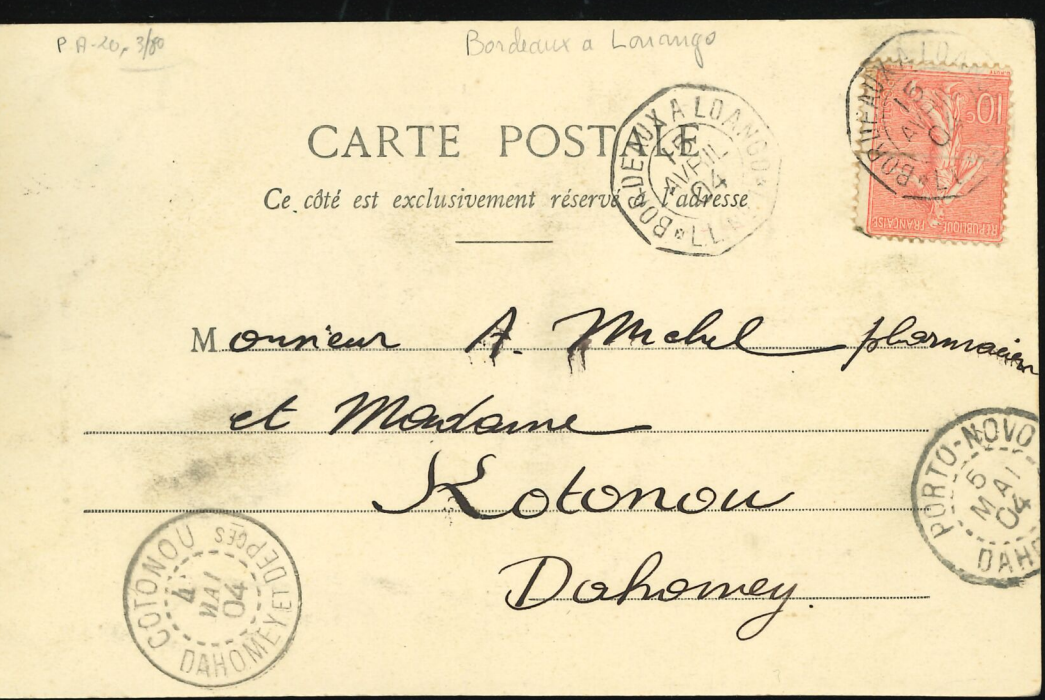 P.A-20, 3/80
Bordeaux a Louango
CARTE POSTALE
Ce côté est exclusivement réservé à l'adresse
BORDEAUX A LOANGO
15
AVRIL
04
L.L.
BORDEAUX A LOAN
15
AV
0
L.L
10c
REPUBLIQUE FRANÇAISE
Monsieur A. Michel pharmacien
et Madame
Kotonou
Dahomey.
PORTO-NOVO
5
MAI
04
DAHO
COTONOU
4
MAI
04
DAHOMEY ET DEPCES